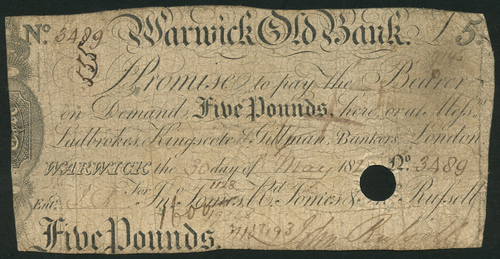 No. 3489 Warwick Old Bank. £5
I Promise to pay the Bearer
on Demand, Five Pounds, here, or at Messrs.
Ladbrokes, Kingscote & Gillman, Bankers, London
WARWICK the 30 day of May 18 No. 3489
For Tomes & Russell
Ent.
Five Pounds. John Russell